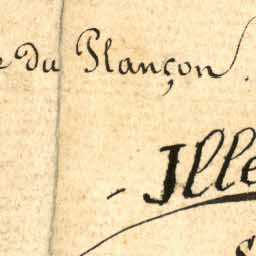 e du Plançon.
- Ille